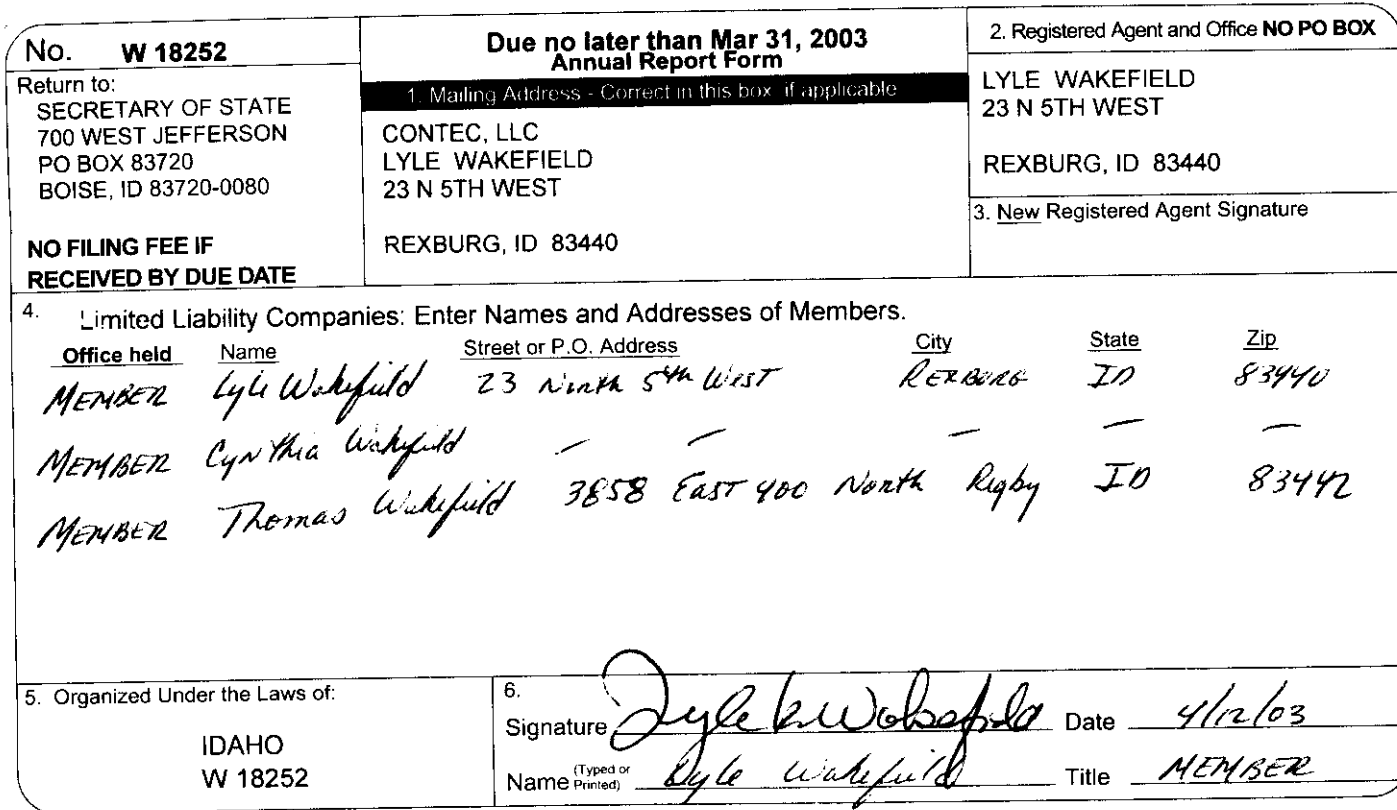 No. W 18252
Return to:
SECRETARY OF STATE
700 WEST JEFFERSON
PO BOX 83720
BOISE, ID 83720-0080
NO FILING FEE IF
RECEIVED BY DUE DATE
Due no later than Mar 31, 2003
Annual Report Form
1. Mailing Address - Correct in this box if applicable
CONTEC, LLC
LYLE WAKEFIELD
23 N 5TH WEST
REXBURG, ID 83440
2. Registered Agent and Office NO PO BOX
LYLE WAKEFIELD
23 N 5TH WEST
REXBURG, ID 83440
3. New Registered Agent Signature
4. Limited Liability Companies: Enter Names and Addresses of Members.
Office held Name Street or P.O. Address City State Zip
MEMBER Lyle Wakefield 23 North 5th West REXBURG ID 83440
MEMBER Cynthia Wakefield — — — — —
MEMBER Thomas Wakefield 3858 East 400 North Rigby ID 83442
5. Organized Under the Laws of:
IDAHO
W 18252
6.
Signature Lyle K Wakefield Date 4/12/03
Name (Typed or Printed) Lyle Wakefield Title MEMBER